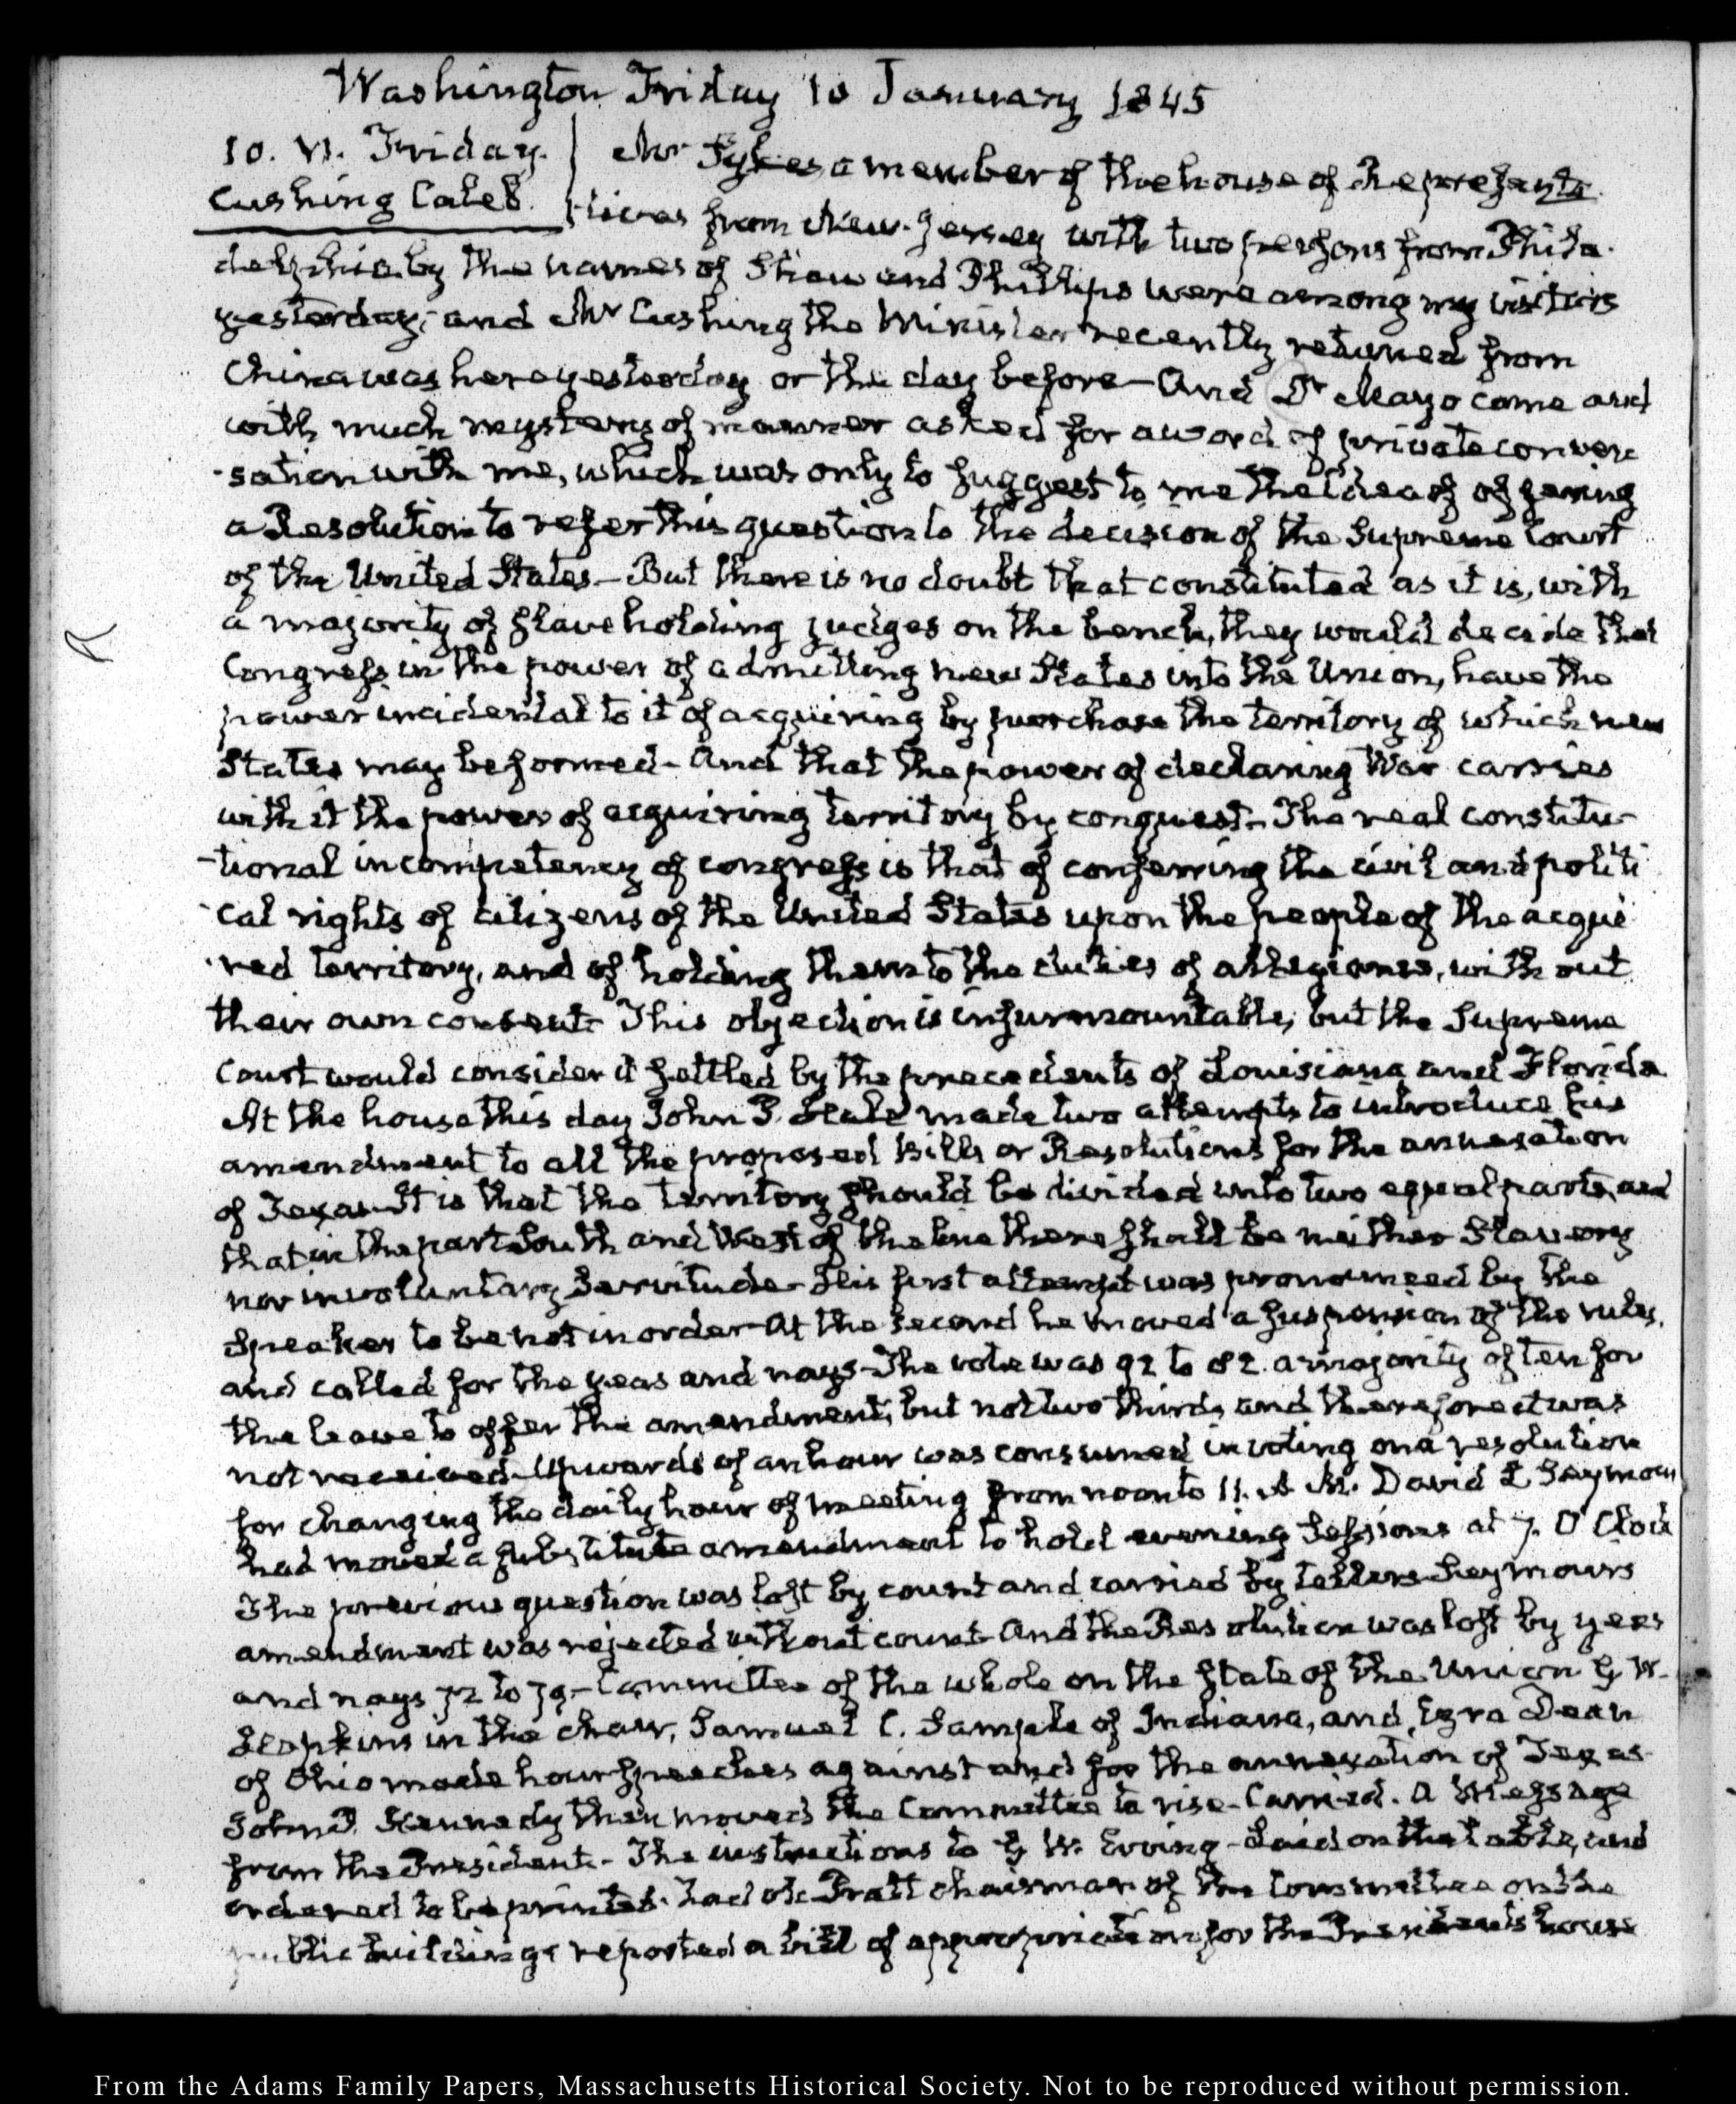 Washington Friday 10 January 1845
10. VI. Friday.
Cushing Caleb.
Mr Sykes a member of the house of Representa
tives from New-Jersey with two persons from Phila-
delphia by the names of Shaw and Phillips were among my visitors
yesterday; and Mr Cushing the Minister recently returned from
China was here yesterday or the day before- And Dr Mayo came and
with much mystery of manner asked for a word of private conver
-sation with me, which was only to suggest to me the idea of
a Resolution to refer this question to the decision of the Supreme Court
of the United States- But there is no doubt that constituted as it is, with
a majority of slave holding judges on the bench, they would decide that
Congress in the power of admitting new States into the Union, have the
power incidental to it of acquiring by purchase the territory of which new
States may be formed- And that the power of declaring War carries
with it the power of acquiring territory by conquest- The real constitu-
-tional incompetency of congress is that of conferring the civil and politi
cal rights of citizens of the United States upon the people of the acqui
-red territory, and of holding them to the duties of allegiance, without
their own consent- This objection is insurmountable; but the Supreme
Court would consider it settled by the precedents of Louisiana and Florida
At the house this day John P. Hale made two attempts to introduce his
amendment to all the proposed Bills or Resolutions for the annexation
of Texas- It is that the Territory should be divided into two equal parts, and
that in the part South and West of the line there shall be neither Slavery
nor involuntary Servitude- His first attempt was pronounced by the
Speaker to be not in order- At the second he moved a suspension of the rules,
and called for the yeas and nays- The vote was 92 to 82. a majority of ten for
the leave to offer the amendment, but not two thirds, and therefore it was
not received- Upwards of an hour was consumed in voting on a resolution
for changing the daily hour of meeting from noon to 11. A. M. David L Seymour
had moved a substitute amendment to hold evening Sessions at 7. O'Clock
The previous question was lost by count and carried by tellers- Seymour's
amendment was rejected without count- And the Resolution was lost by yeas
and nays 72 to 79.- Committee of the whole on the state of the Union G W.
Hopkins in the chair, Samuel C. Sample of Indiana, and Ezra Dean
of Ohio made hour speeches against and for the annexation of Texas-
John P. Kennedy then moved the Committee to rise- Carried. A Message
from the President- The instructions to G W. Erving- Laid on the table, and
ordered to be printed. Zadok Pratt chairman of the Committee on the
public buildings reported a bill of appropriation for the President's house
From the Adams Family Papers, Massachusetts Historical Society. Not to be reproduced without permission.